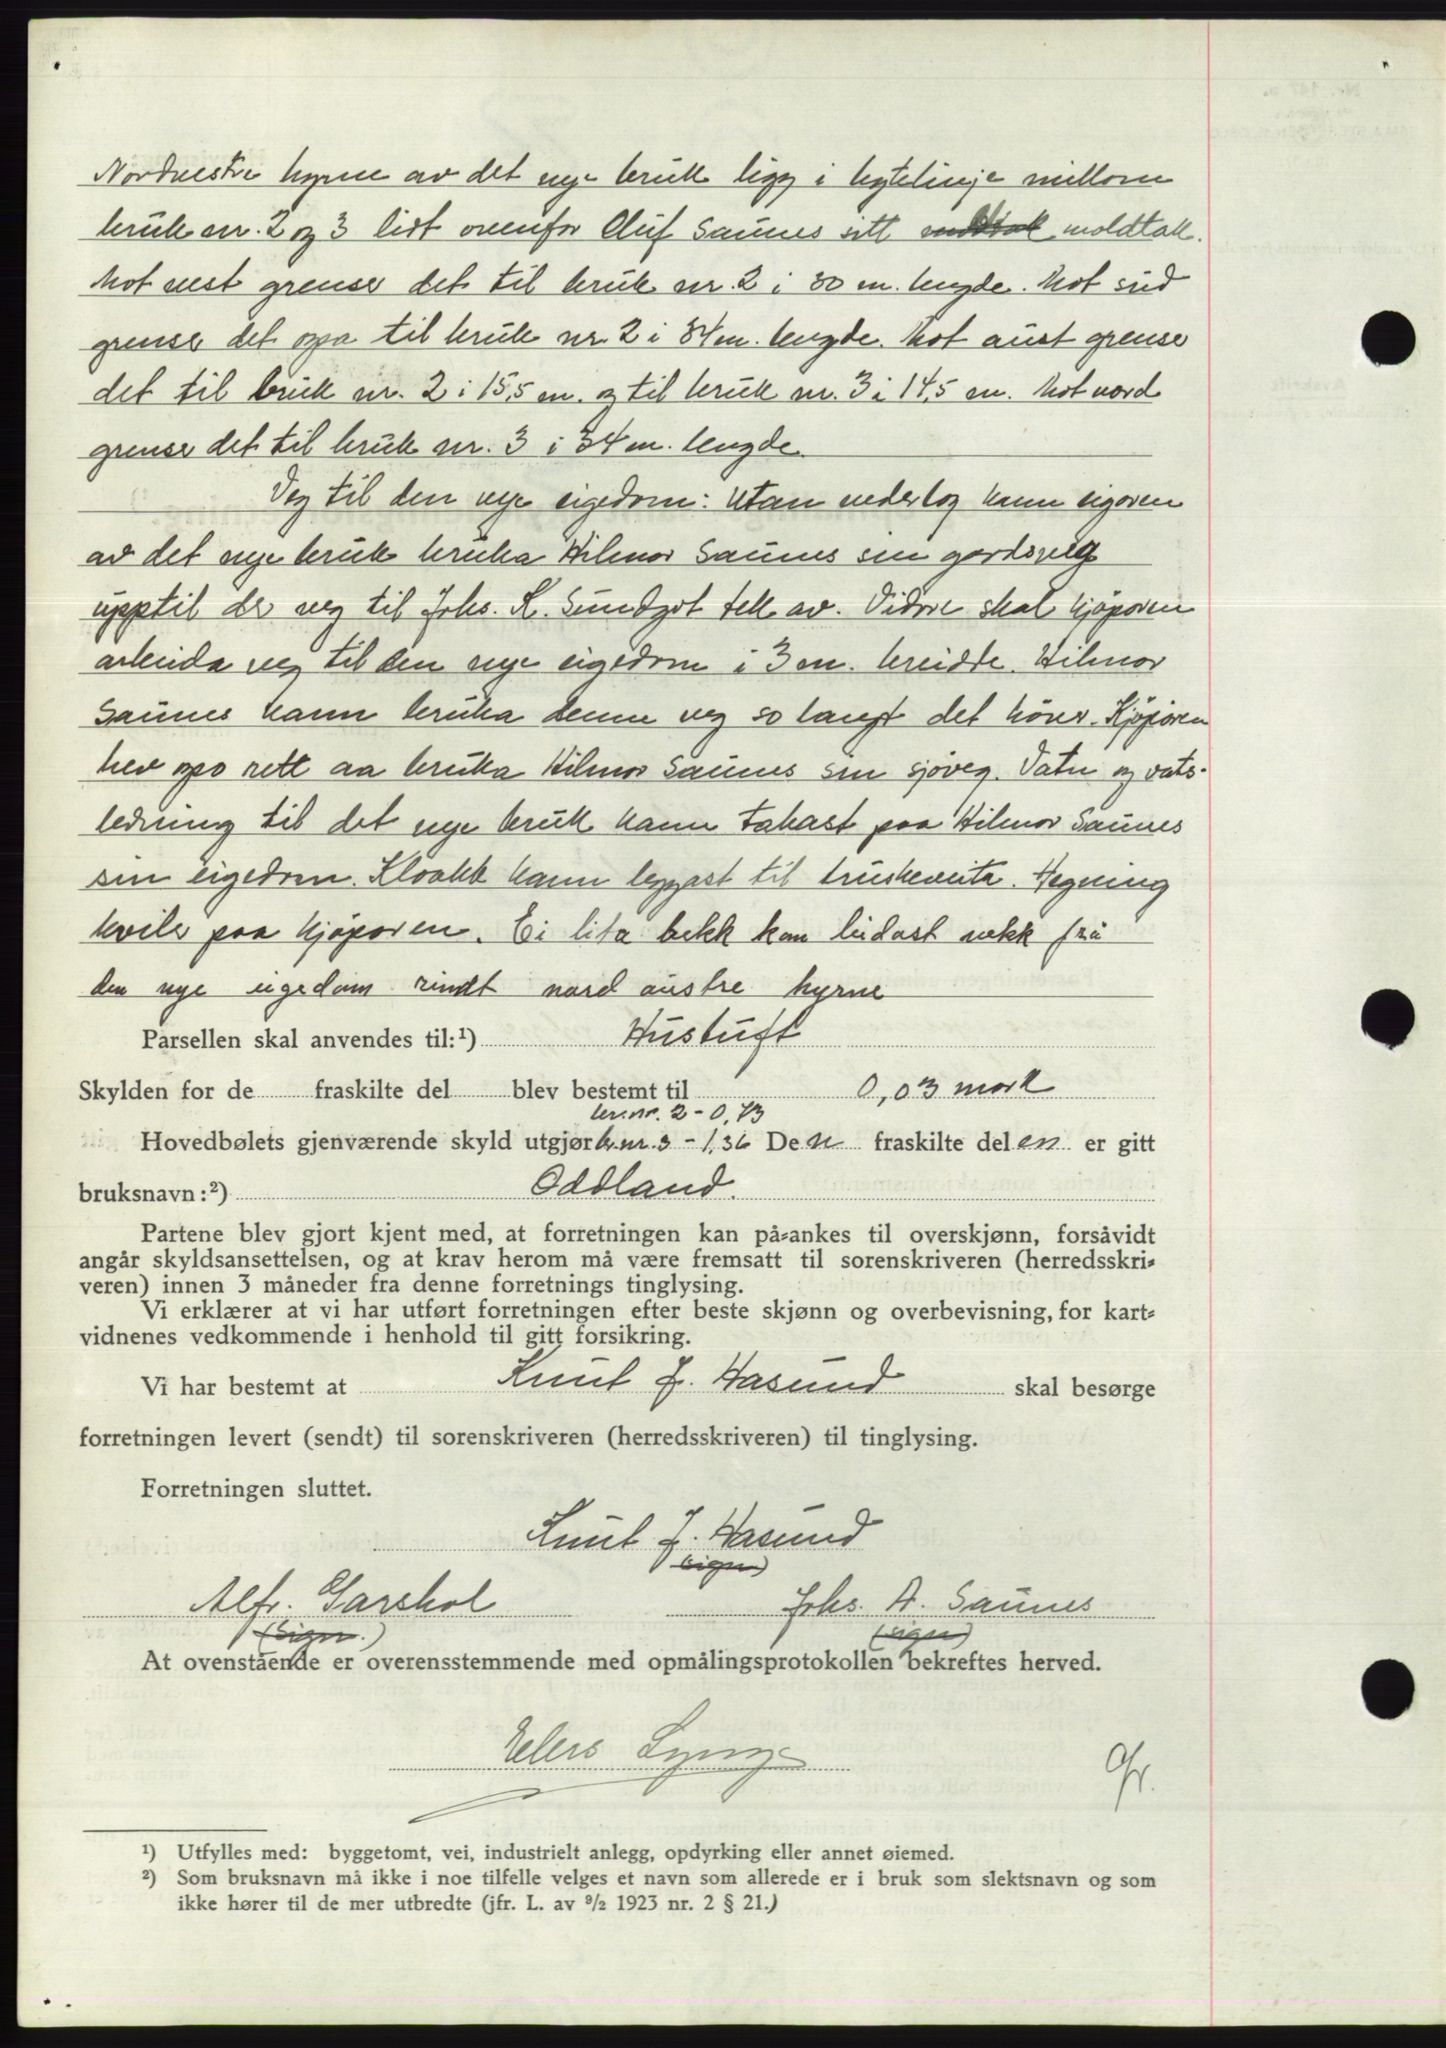 Nordvestre hyrne av det nye bruk ligg i bytelinje millom
bruk nr. 2 og 3 lidt ovenfor Oluf Saunes sitt moldtak.
Mot vest grenser det til bruk nr. 2 i 30 m. lengde. Mot sud
grenser det opa til bruk nr. 2 i 34 m. lengde. Mot aust grenser
det til bruk nr. 2 i 15,5 m. og til bruk nr. 3 i 14,5 m. Mot nord
grenser det til bruk nr. 3 i 34 m. lengde.
Veg til den nye eigedom: Utan vederlog kann eigaren
av det nye bruk bruka Hilmar Saunes sin gardsveg
upptil der veg til Johs. K. Sundgot tek av. Vidare skal kjøparen
arbeida veg til den nye eigedom i 3 m. breidde. Hilmar
Saunes kann bruka denne veg so langt det høver. Kjøparen
hev opo rett aa bruka Hilmar Saunes sin sjøveg. Vatn og vats-
ledning til det nye bruk kann takast paa Hilmar Saunes
sin eigedom. Kloakk kann leggast til bruskeveita. Hegning
kviler paa kjøparen. Ei lita bekk kan leidast vekk frå
den nye eigedom rundt nord austre hyrne
Parsellen skal anvendes til:¹) Hustuft
Skylden for de fraskilte del blev bestemt til 0,03 mark
br.nr. 2 - 0,73
Hovedbølets gjenværende skyld utgjør br.nr. 3 - 1,36 Den fraskilte delen er gitt
bruksnavn:²) Oddland.
Partene blev gjort kjent med, at forretningen kan på-ankes til overskjønn, forsåvidt
angår skyldsansettelsen, og at krav herom må være fremsatt til sorenskriveren (herredsskri-
veren) innen 3 måneder fra denne forretnings tinglysing.
Vi erklærer at vi har utført forretningen efter beste skjønn og overbevisning, for kart-
vidnenes vedkommende i henhold til gitt forsikring.
Vi har bestemt at Knut J. Hasund skal besørge
forretningen levert (sendt) til sorenskriveren (herredsskriveren) til tinglysing.
Forretningen sluttet.
Knut J. Hasund
(sign)
Alfr. Garshol Johs. A. Saunes
(sign.) (sign)
At ovenstående er overensstemmende med opmålingsprotokollen bekreftes herved.
Elers Lynge
Gr.
¹) Utfylles med: byggetomt, vei, industrielt anlegg, opdyrking eller annet øiemed.
²) Som bruksnavn må ikke i noe tilfelle velges et navn som allerede er i bruk som slektsnavn og som
ikke hører til de mer utbredte (jfr. L. av 9/2 1923 nr. 2 § 21.)